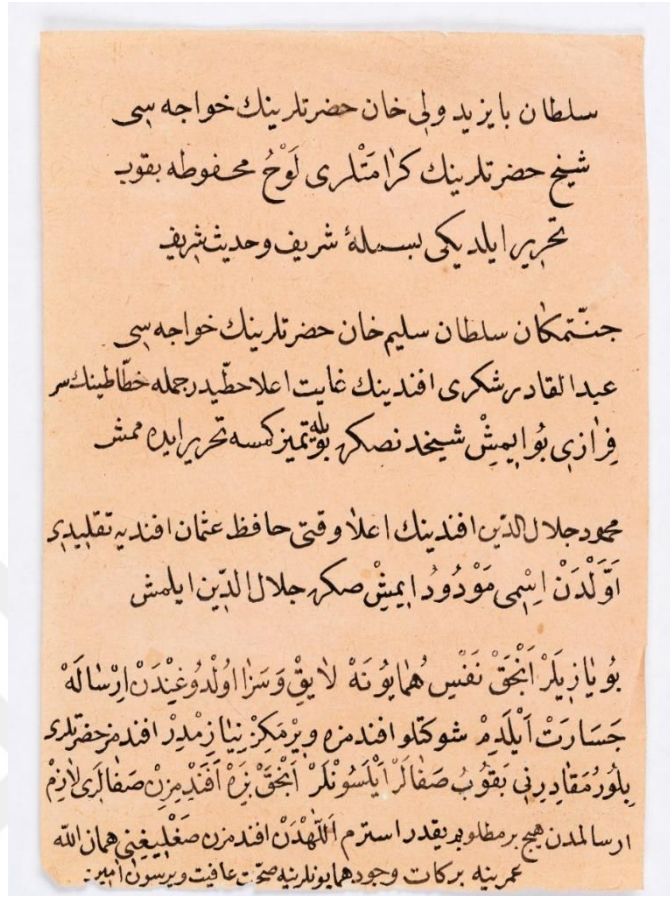 سلطان بايزيد ولى خان حضرتلرينك خواجه سى
شيخ حضرتلرينك كرامَتْلرى لَوْحُ محفوظه بقوب
تحرير ايلديكى بسملهٔ شريف وحديث شريف
جنّتمكان سلطان سليم خان حضرتلرينك خواجه سى
عبدالقادر شكرى افندينك غايت اعلا حطّيدر جمله خطّاطينك سر
فِرازى بُو ايمِشْ شيخدنصكره بويله تميز كمسه تحرير ايده ممش
محمود جلال الدّين افندينك اعلا وقتى حافظ عثمان افندى يه تقليدى
اَوَّلْدَنْ اِسْمى مَوْدُودُ ايمِشْ صكره جلال الدّين ايلمش
بُو يَازِيلَرْ اَنْجَقْ نَفْسِ هُمَايُونَه لَايِقْ وَسَزَا اُولْدُوغِيْنْدَنْ اِرْسَالَهْ
جَسَارَتْ اَيْلَدِمْ شوكتلو افندمزه ويرْمَكِزْ نِيَازِمْدِرْ افندمز حضرتلرى
بِلُورْ مِقَادِرنِى بَقُوبْ صَفَالَرْ اَيْلَسُونْلَرْ اَنْجَقْ بِزَهْ اَفَنْدِمِزِنْ صَفَالَرِى لَازِمْ
ارسالمدن هيچ بر مطلوبم يقدر استرم اَللّٰهْدَنْ افندمزن صَغْلِيغِنِى همان الله
عمرينه بركات وجود همايونلرينه صحّت عافيت ويرسون امين